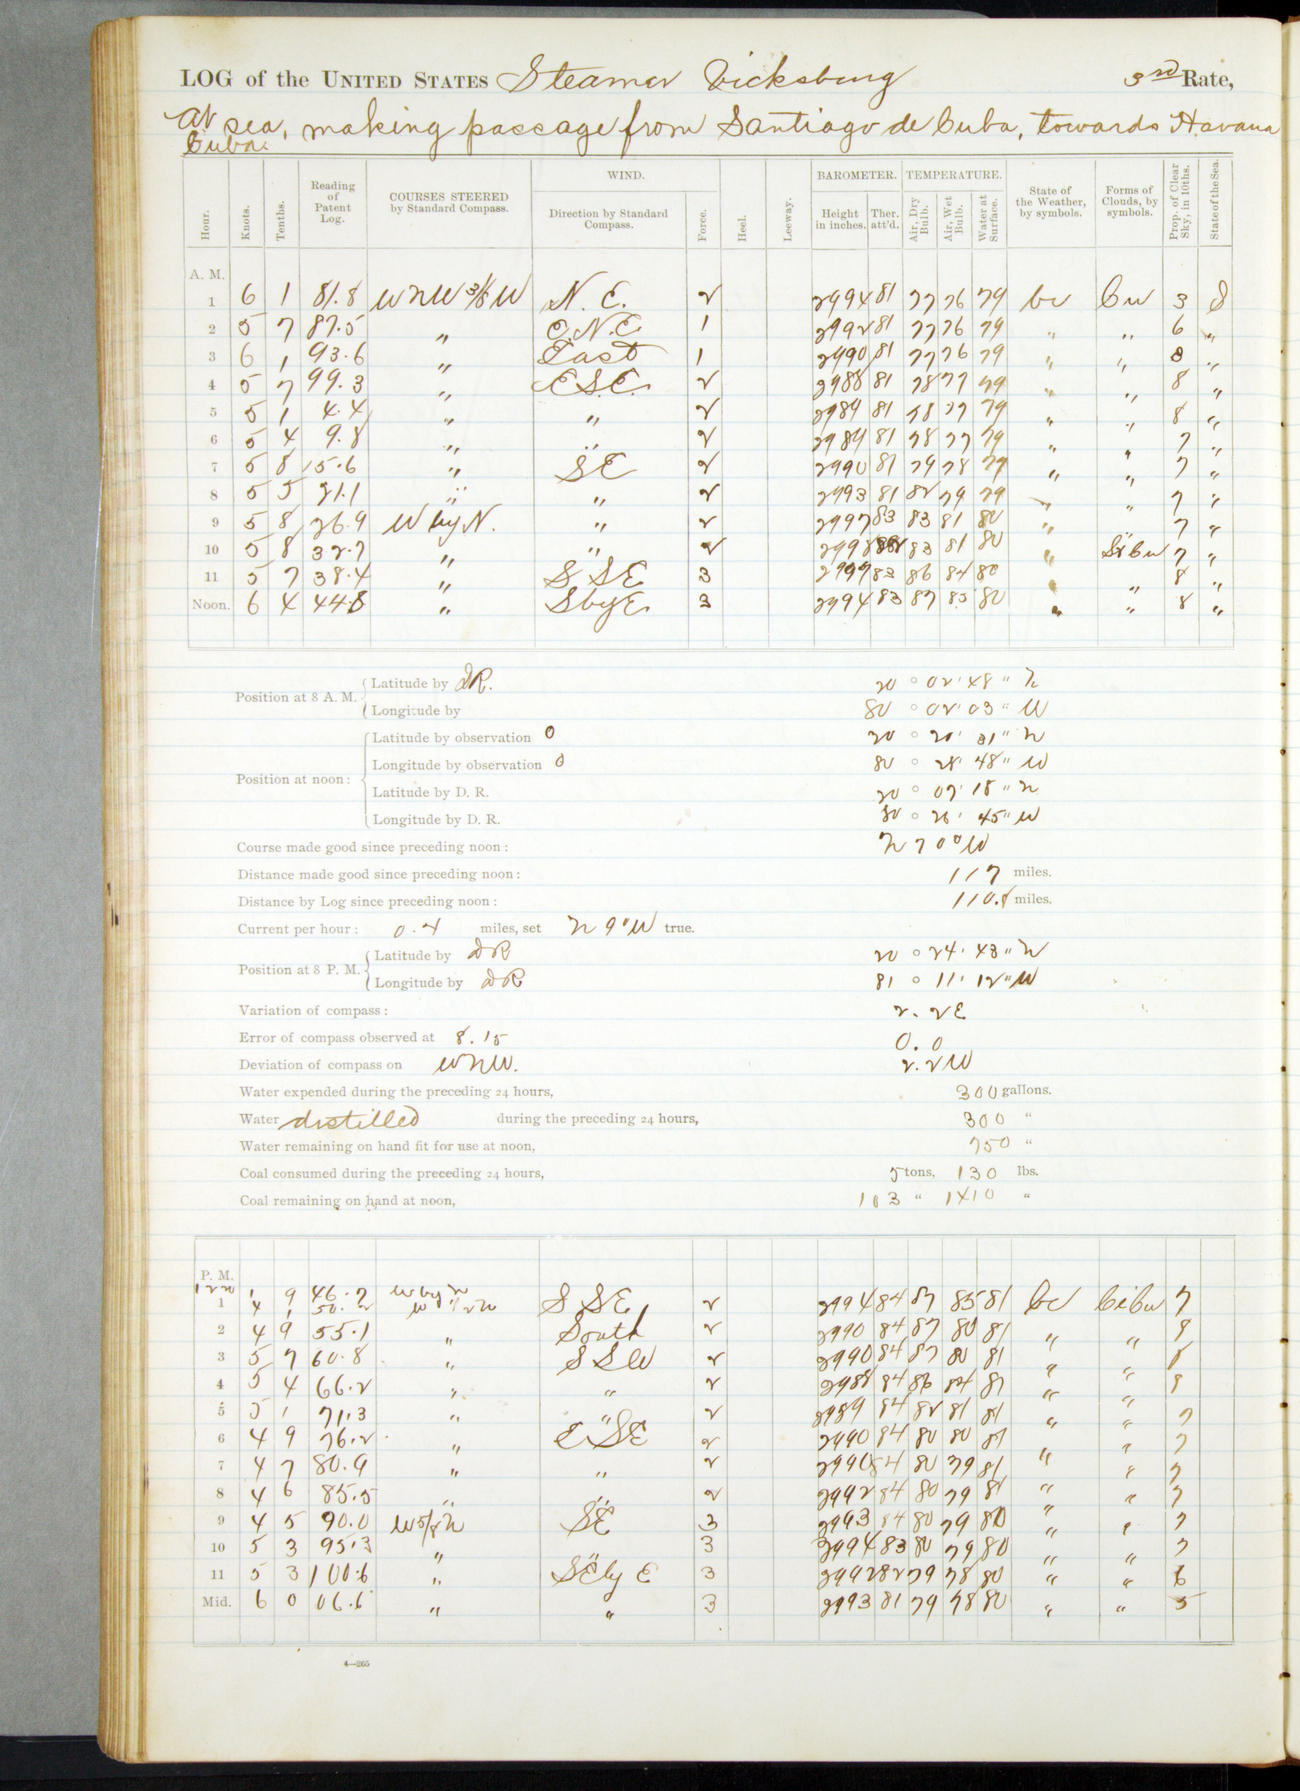 LOG of the UNITED STATES Steamer Vicksburg 3rd Rate,
At sea, making passage from Santiago de Cuba, towards Havana
Cuba.
Hour. Knots. Tenths. Reading of Patent Log. COURSES STEERED by Standard Compass. WIND. Direction by Standard Compass. Force. Heel. Leeway. BAROMETER. Height in inches. Ther. att'd. TEMPERATURE. Air, Dry Bulb. Air, Wet Bulb. Water at Surface. State of the Weather, by symbols. Forms of Clouds, by symbols. Prop. of Clear Sky, in 10ths. State of the Sea.
A. M.
1 6 1 81.8 WNW 3/8 W N.E. 2 2994 81 77 76 79 bc Cu 3 S
2 5 7 87.5 " E.N.E. 1 2992 81 77 76 79 " " 6 "
3 6 1 93.6 " East 1 2990 81 77 76 79 " " 8 "
4 5 7 99.3 " E.S.E. 2 2988 81 78 77 79 " " 8 "
5 5 1 4.4 " " 2 2989 81 78 77 79 " " 8 "
6 5 4 9.8 " " 2 2989 81 78 77 79 " " 7 "
7 5 8 15.6 " SE 2 2990 81 79 78 79 " " 7 "
8 5 5 21.1 " " 2 2993 81 82 79 79 " " 7 "
9 5 8 26.9 W by N. " 2 2997 83 83 81 80 " " 7 "
10 5 8 32.7 " " 2 2998 83 81 80 " 7 "
11 5 7 38.4 " SSE 3 2997 83 86 84 80 " " 8 "
Noon. 6 4 44.8 " S by E 3 2994 83 87 85 80 " " 8 "
Position at 8 A. M. Latitude by DR. 20 ° 02' 48" N
Longitude by 80 ° 02' 03" W
Position at noon: Latitude by observation O 20 ° 20' 31" N
Longitude by observation O 80 ° 28' 48" W
Latitude by D. R. 20 ° 07' 18" N
Longitude by D. R. 80 ° 26' 45" W
Course made good since preceding noon: N 70° W
Distance made good since preceding noon: 117 miles.
Distance by Log since preceding noon: 110.8 miles.
Current per hour: 0.4 miles, set N 9° W true.
Position at 8 P. M. Latitude by DR 20 ° 24' 43" N
Longitude by DR 81 ° 11' 12" W
Variation of compass: 2.2E
Error of compass observed at 8.15 0.0
Deviation of compass on WNW. 2.2W
Water expended during the preceding 24 hours, 300 gallons.
Water distilled during the preceding 24 hours, 300 "
Water remaining on hand fit for use at noon, 750 "
Coal consumed during the preceding 24 hours, 5 tons, 130 lbs.
Coal remaining on hand at noon, 103 " 1410 "
P. M.
1 9 46.7 W by N
1 4 1 SSE 2 2994 84 87 85 81 bc CiCu 7
2 4 9 55.1 " South 2 2990 84 87 80 81 " " 8
3 5 7 60.8 " SSW 2 2990 84 87 80 81 " " 8
4 5 4 66.2 " " 2 2988 84 86 84 81 " " 8
5 5 1 71.3 " " 2 2989 84 82 81 81 " " 7
6 4 9 76.2 " ESE 2 2990 84 80 80 81 " " 7
7 4 7 80.9 " " 2 2990 84 80 79 81 " " 7
8 4 6 85.5 " " 2 2992 84 80 79 81 " " 7
9 4 5 90.0 W 5/8 N SE 3 2993 84 80 79 80 " " 7
10 5 3 95.3 " " 3 2994 83 80 79 80 " " 7
11 5 3 100.6 " SE by E 3 2992 82 79 78 80 " " 6
Mid. 6 0 06.6 " " 3 2993 81 79 78 80 " " 5
4—265